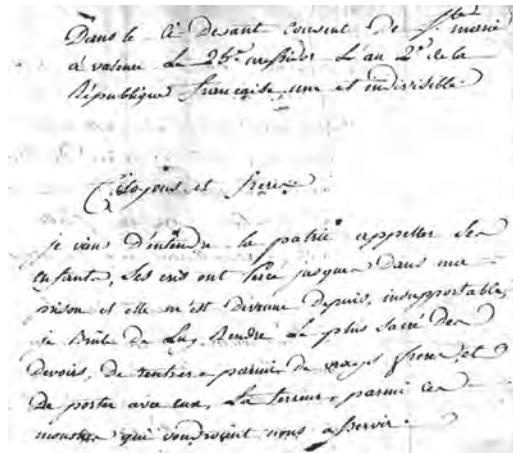 Dans le Ci Devant Couvent de Ste marie
à valence Le 26e messidor L'an 2e de la
République francaise, une et indivisible
Citoyens et freres
je viens D'entendre la patrie appeller Ses
enfants, Ses cris ont percé jusques Dans ma
prison et elle m'est Devenue Depuis, insupportable,
je Brûle de Luy Rendre Le plus Sacré des
Devoirs, De rentrer parmis de vrays freres et
De porter avec eux, La terreur parmi ces
monstres qui voudroient nous asservir.